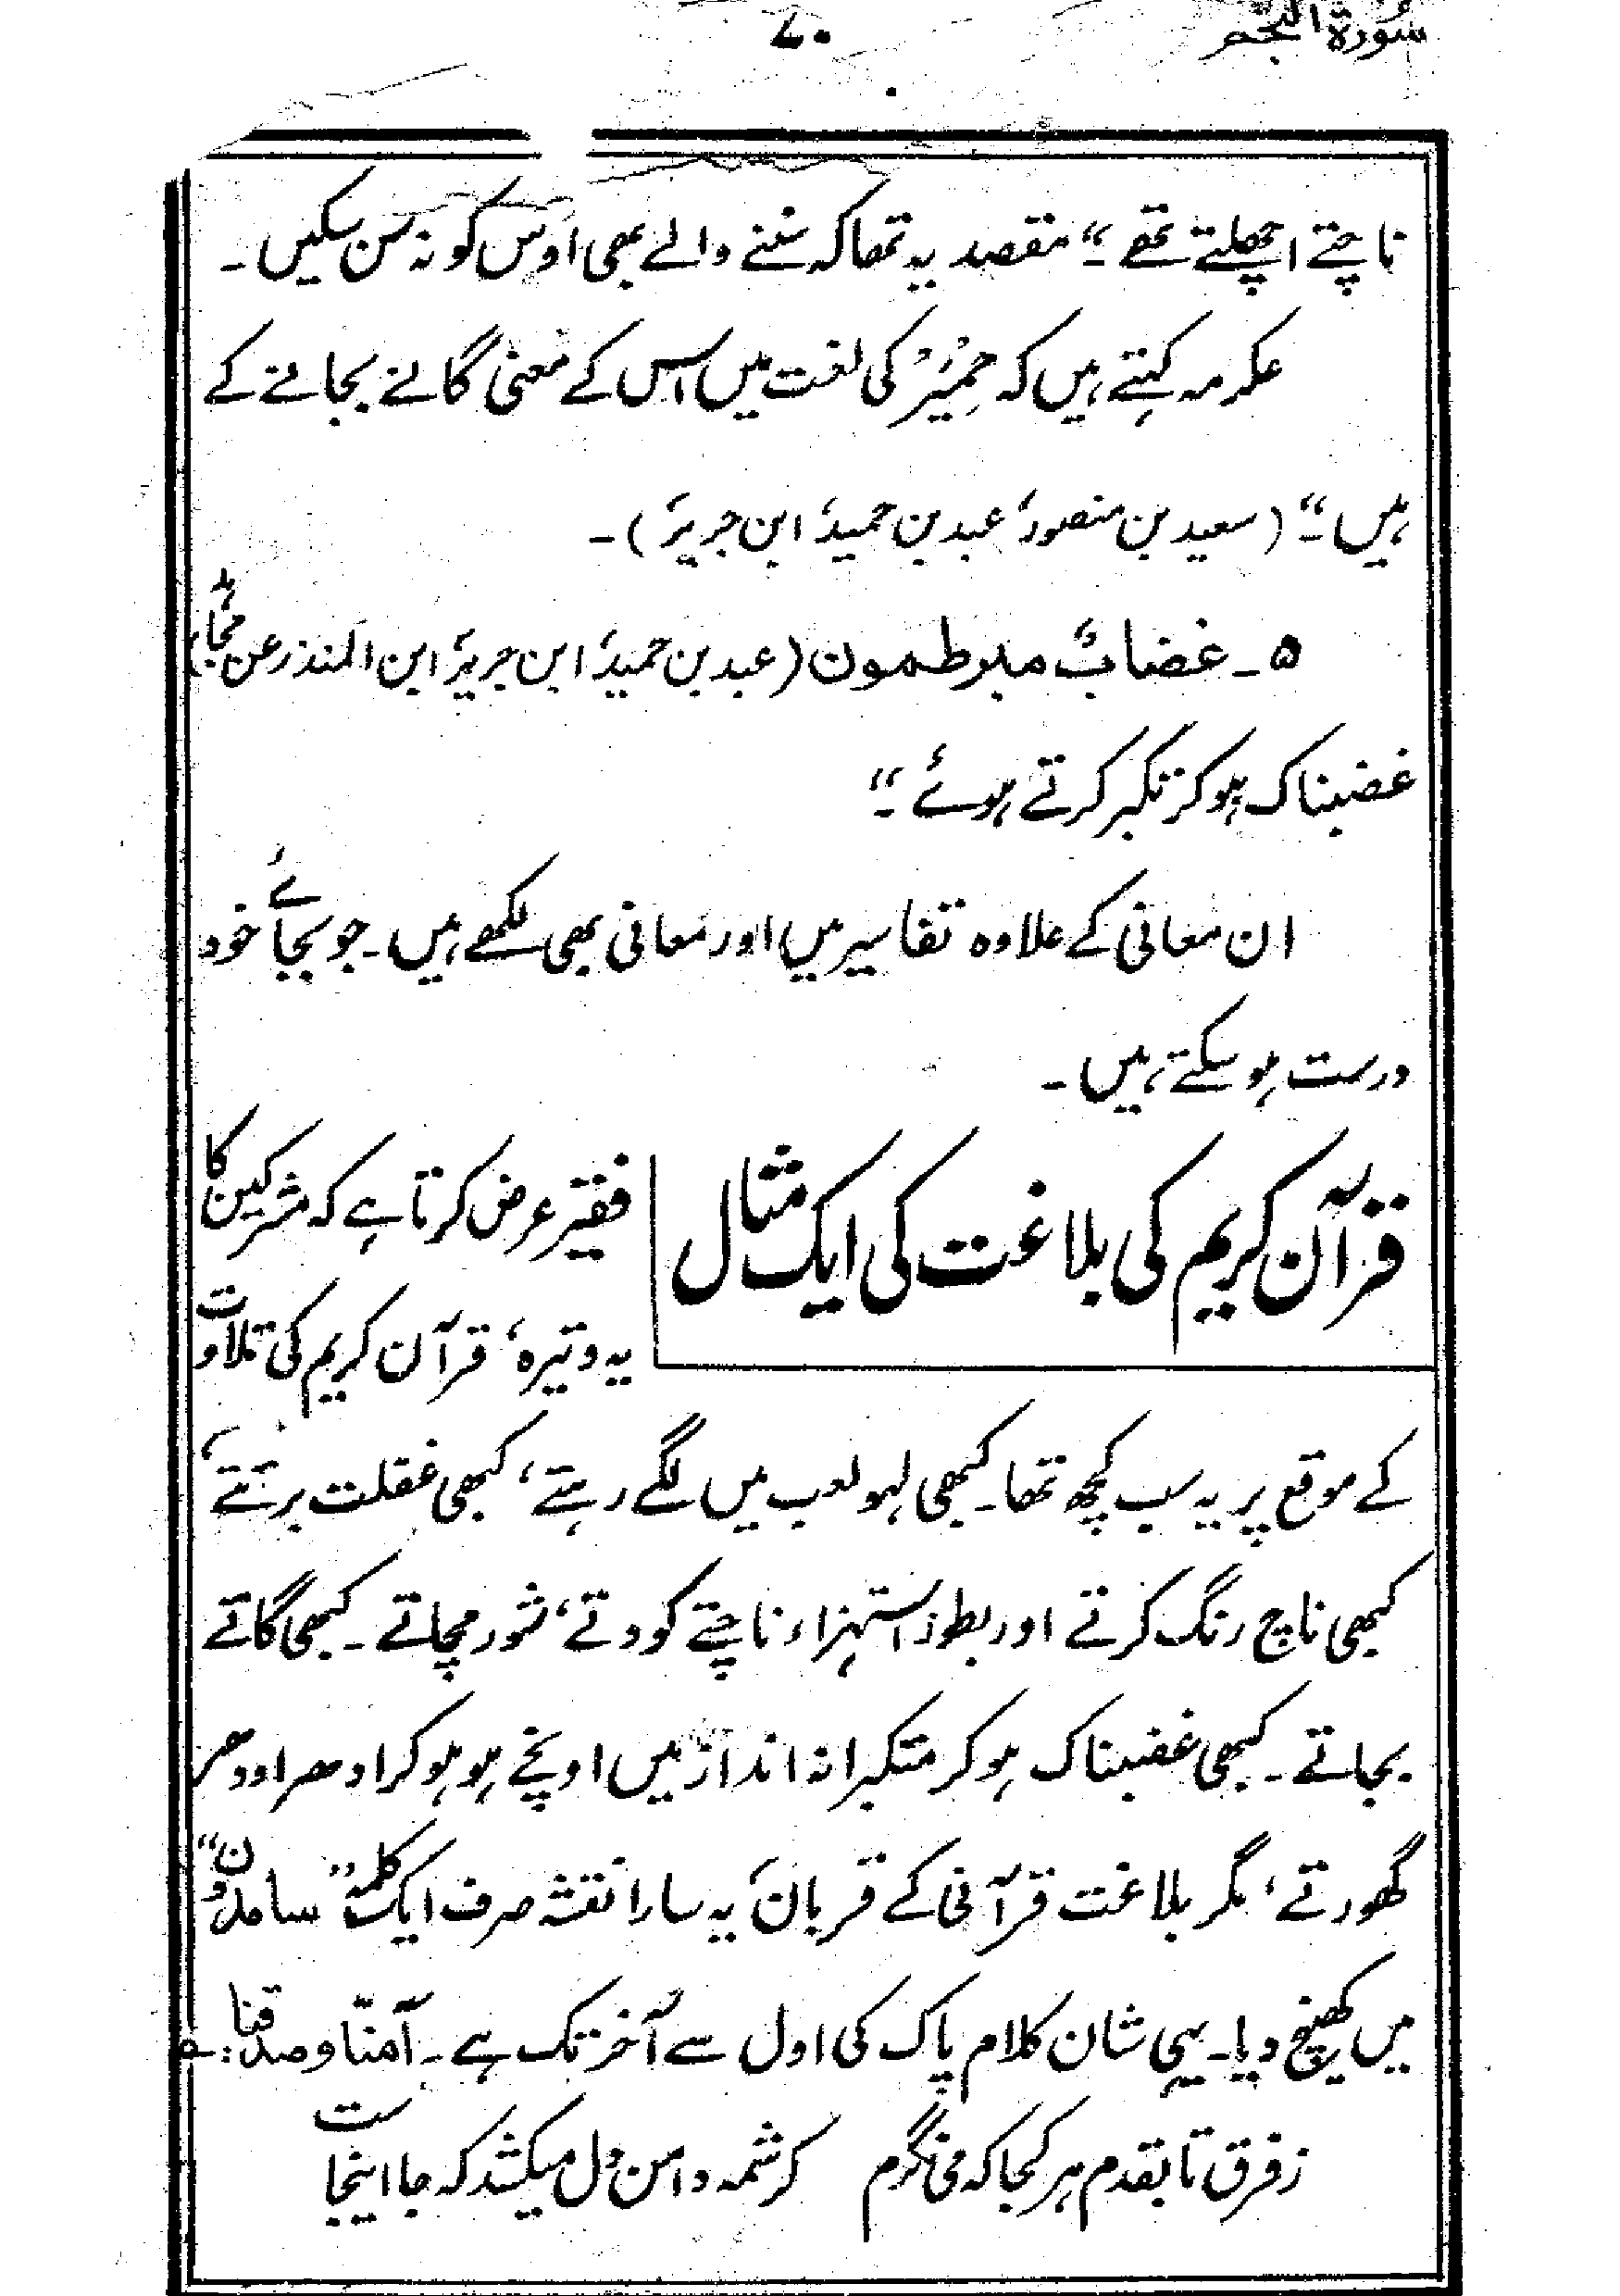 سُورۃ النجم
۷۰
ناچتے اچھلتے تھے۔“ مقصد یہ تھا کہ سننے والے بھی اوس کو نہ سن سکیں۔
عکرمہ کہتے ہیں کہ حِمْیَرْ کی لغت میں اس کے معنی گانے بجانے کے
ہیں۔“ (سعید بن منصور، عبد بن حمید، ابن جریر)۔
۵۔ غضابٌ مبرطمون (عبد بن حمید، ابن جریر، ابن المنذر عن مجاہد)
غضبناک ہو کر تکبر کرتے ہوئے۔“
ان معانی کے علاوہ تفاسیر میں اور معانی بھی لکھے ہیں۔ جو بجائے خود
درست ہو سکتے ہیں۔
قرآن کریم کی بلاغت کی ایک مثال
فقیر عرض کرتا ہے کہ مشرکین کا
یہ وتیرہ، قرآن کریم کی تلاوت
کے موقع پر یہ سب کچھ تھا۔ کبھی لہو لعب میں لگے رہتے، کبھی غفلت برتتے،
کبھی ناچ رنگ کرتے اور بطور استہزاء ناچتے کودتے، شور مچاتے۔ کبھی گاتے
بجاتے۔ کبھی غضبناک ہو کر متکبرانہ انداز میں اونچے ہو ہو کر اودھر اودھر
گھورتے، مگر بلاغت قرآنی کے قربان، یہ سارا نقشہ صرف ایک کلمہ ”سامدون“
میں کھینچ دیا۔ یہی شان کلام پاک کی اول سے آخر تک ہے۔ آمنّا وصدقنا :۔
زفرق تا بقدم ہر کجا کہ می نگرم کرشمہ دامن دل میکشد کہ جا اینجاست